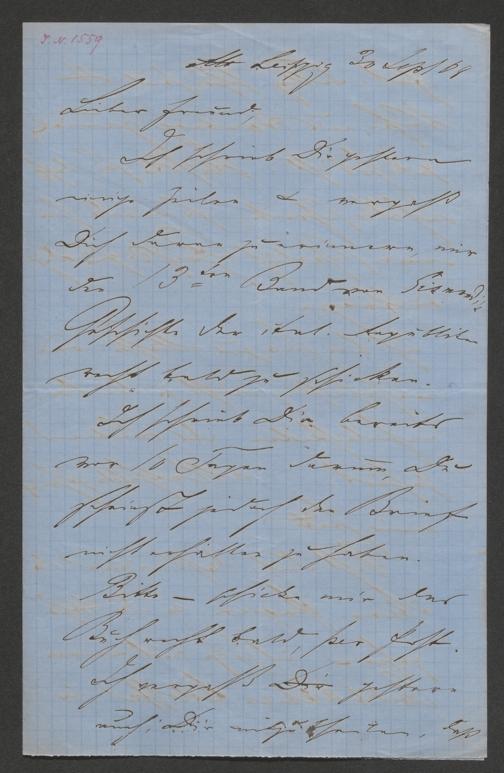 J. N. 1559
Leipzig 30 Sept 68
Lieber Freund
Ich schrieb Dir gestern
einige Zeilen & vergaß
Dich daran zu erinnern, mir
den 13ten Band von Sismondi's
Geschichte der ital. Republiken
recht bald zu schicken.
Ich schrieb Dir bereits
vor 10 Tagen darum, Du
scheinst jedoch den Brief
nicht erhalten zu haben.
Bitte – schicke mir das
Buch recht bald, per Post.
Ich vergaß Dir gestern
auch, Dir mitzutheilen, daß